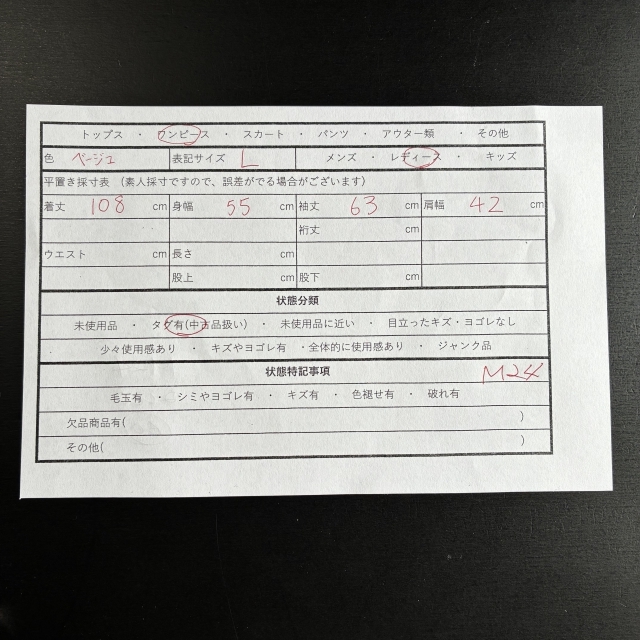 トップス ・ ワンピース ・ スカート ・ パンツ ・ アウター類 ・ その他
色 ベージュ 表記サイズ L メンズ ・ レディース ・ キッズ
平置き採寸表 （素人採寸ですので、誤差がでる場合がございます）
着丈 108 cm 身幅 55 cm 袖丈 63 cm 肩幅 42 cm
裄丈 cm
ウエスト cm 長さ cm
股上 cm 股下 cm
状態分類
未使用品 ・ タグ有(中古品扱い) ・ 未使用品に近い ・ 目立ったキズ・ヨゴレなし
少々使用感あり ・ キズやヨゴレ有 ・全体的に使用感あり ・ ジャンク品
状態特記事項 M24
毛玉有 ・ シミやヨゴレ有 ・ キズ有 ・ 色褪せ有 ・ 破れ有
欠品商品有( )
その他( )